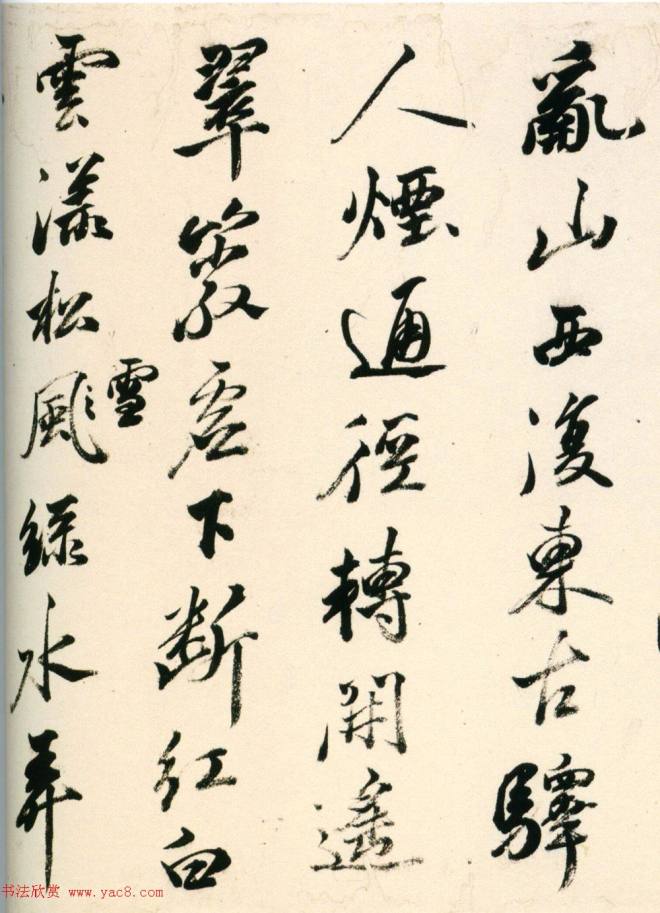 亂山西復東古驛
人煙通徑轉開遙
翠巖君下斷紅白
雲漾松風綠水弄
雪
书法欣赏 www.yac8.com